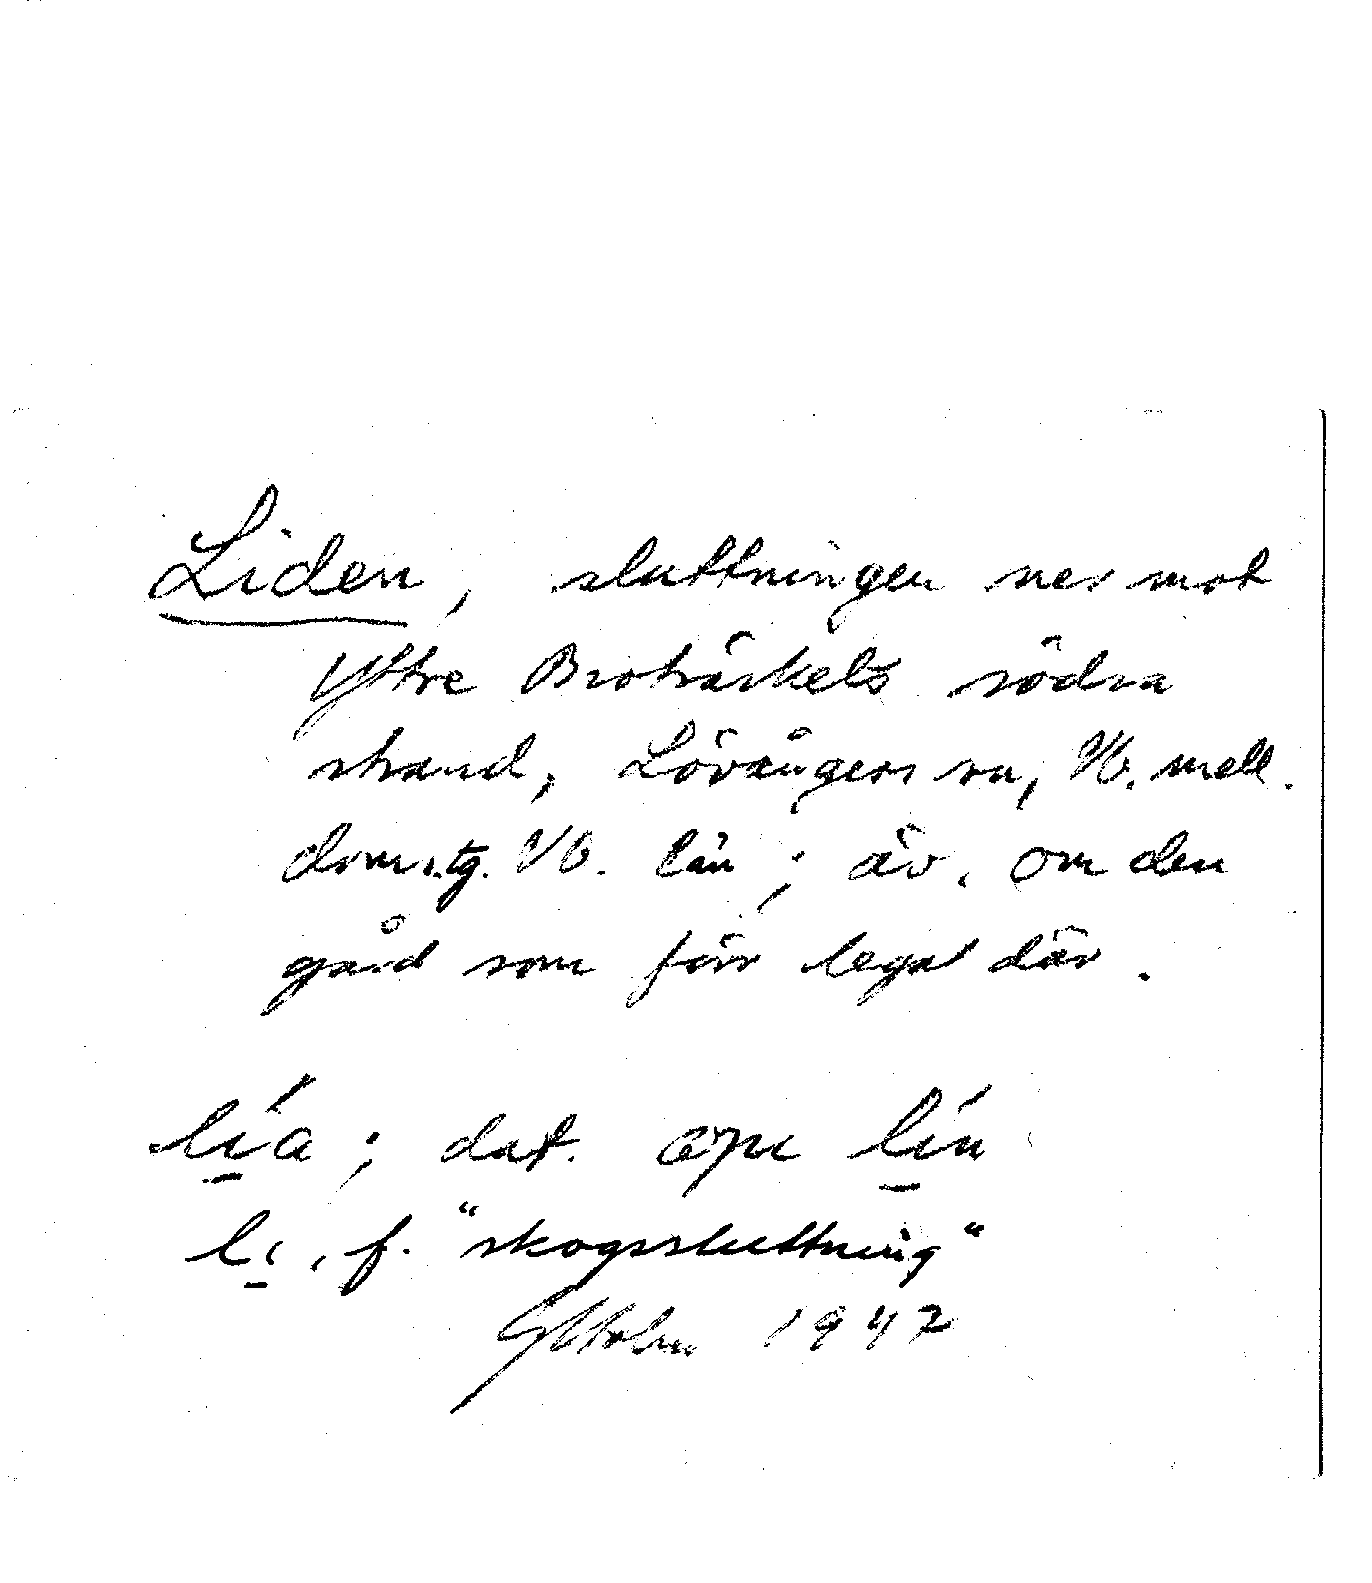 Liden, sluttningen ner mot
Yttre Broträskets södra
strand, Lövångers sn, Vb. mell.
doms.tg. Vb. län; äv. om den
gård som förr legat där.
lía; dat. opu lín
li, f. "skogssluttning"
1947